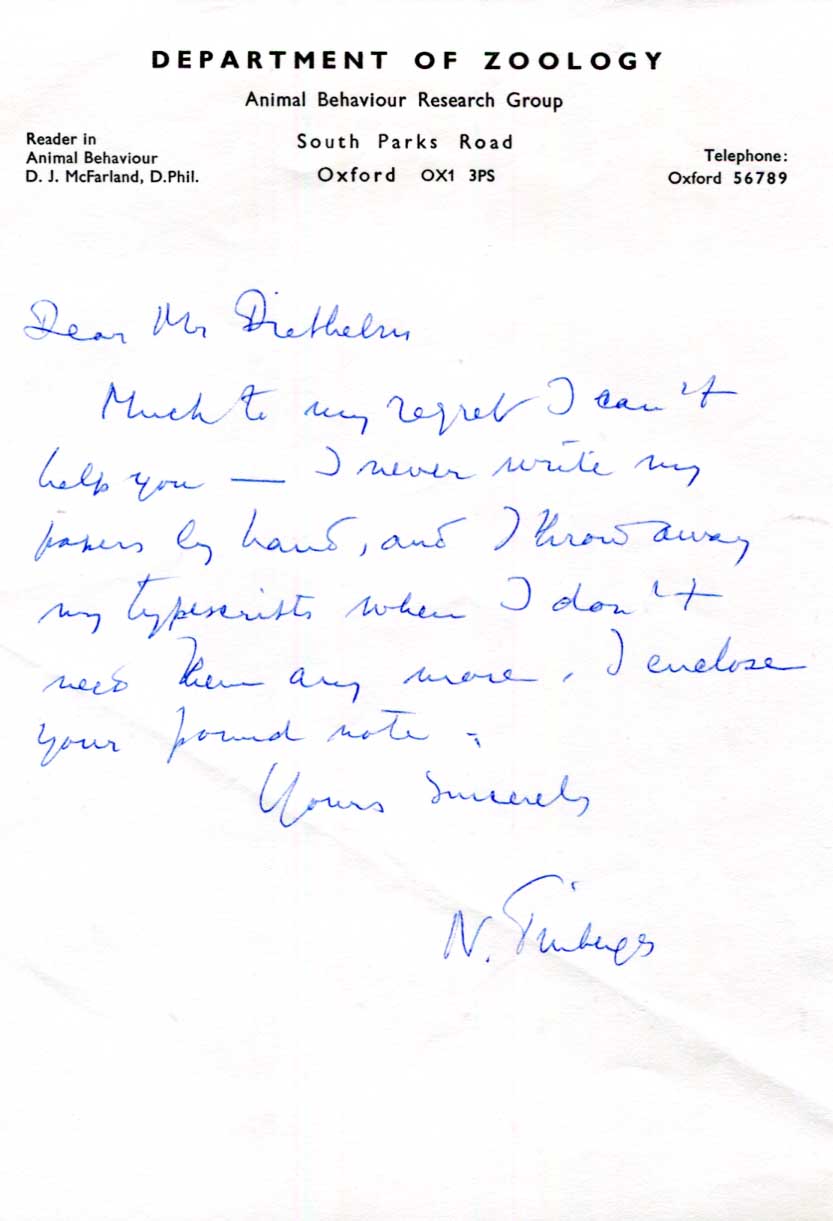 DEPARTMENT OF ZOOLOGY
Animal Behaviour Research Group
Reader in
Animal Behaviour
D. J. McFarland, D.Phil.
South Parks Road
Oxford OX1 3PS
Telephone:
Oxford 56789
Dear Mr Diethelm
Much to my regret I can't
help you — I never write my
papers by hand, and I throw away
my typescripts when I don't
need them any more. I enclose
your pound note.
Yours Sincerely
N. Tinbergen